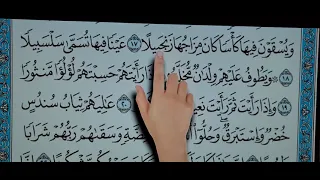 وَيُسْقَوْنَ فِيهَا كَأْسًا كَانَ مِزَاجُهَا زَنجَبِيلًا ١٧ عَيْنًا فِيهَا تُسَمَّىٰ سَلْسَبِيلًا
١٨ وَيَطُوفُ عَلَيْهِمْ وِلْدَٰنٌ رَأَيْتَهُمْ حَسِبْتَهُمْ لُؤْلُؤًا مَّنثُورًا
١٩ وَإِذَا رَأَيْتَ ثَمَّ رَأَيْتَ ٢٠ عَٰلِيَهُمْ ثِيَابُ سُندُسٍ
خُضْرٌ وَإِسْتَبْرَقٌ وَحُلُّوٓا۟ وَسَقَىٰهُمْ رَبُّهُمْ شَرَابًا